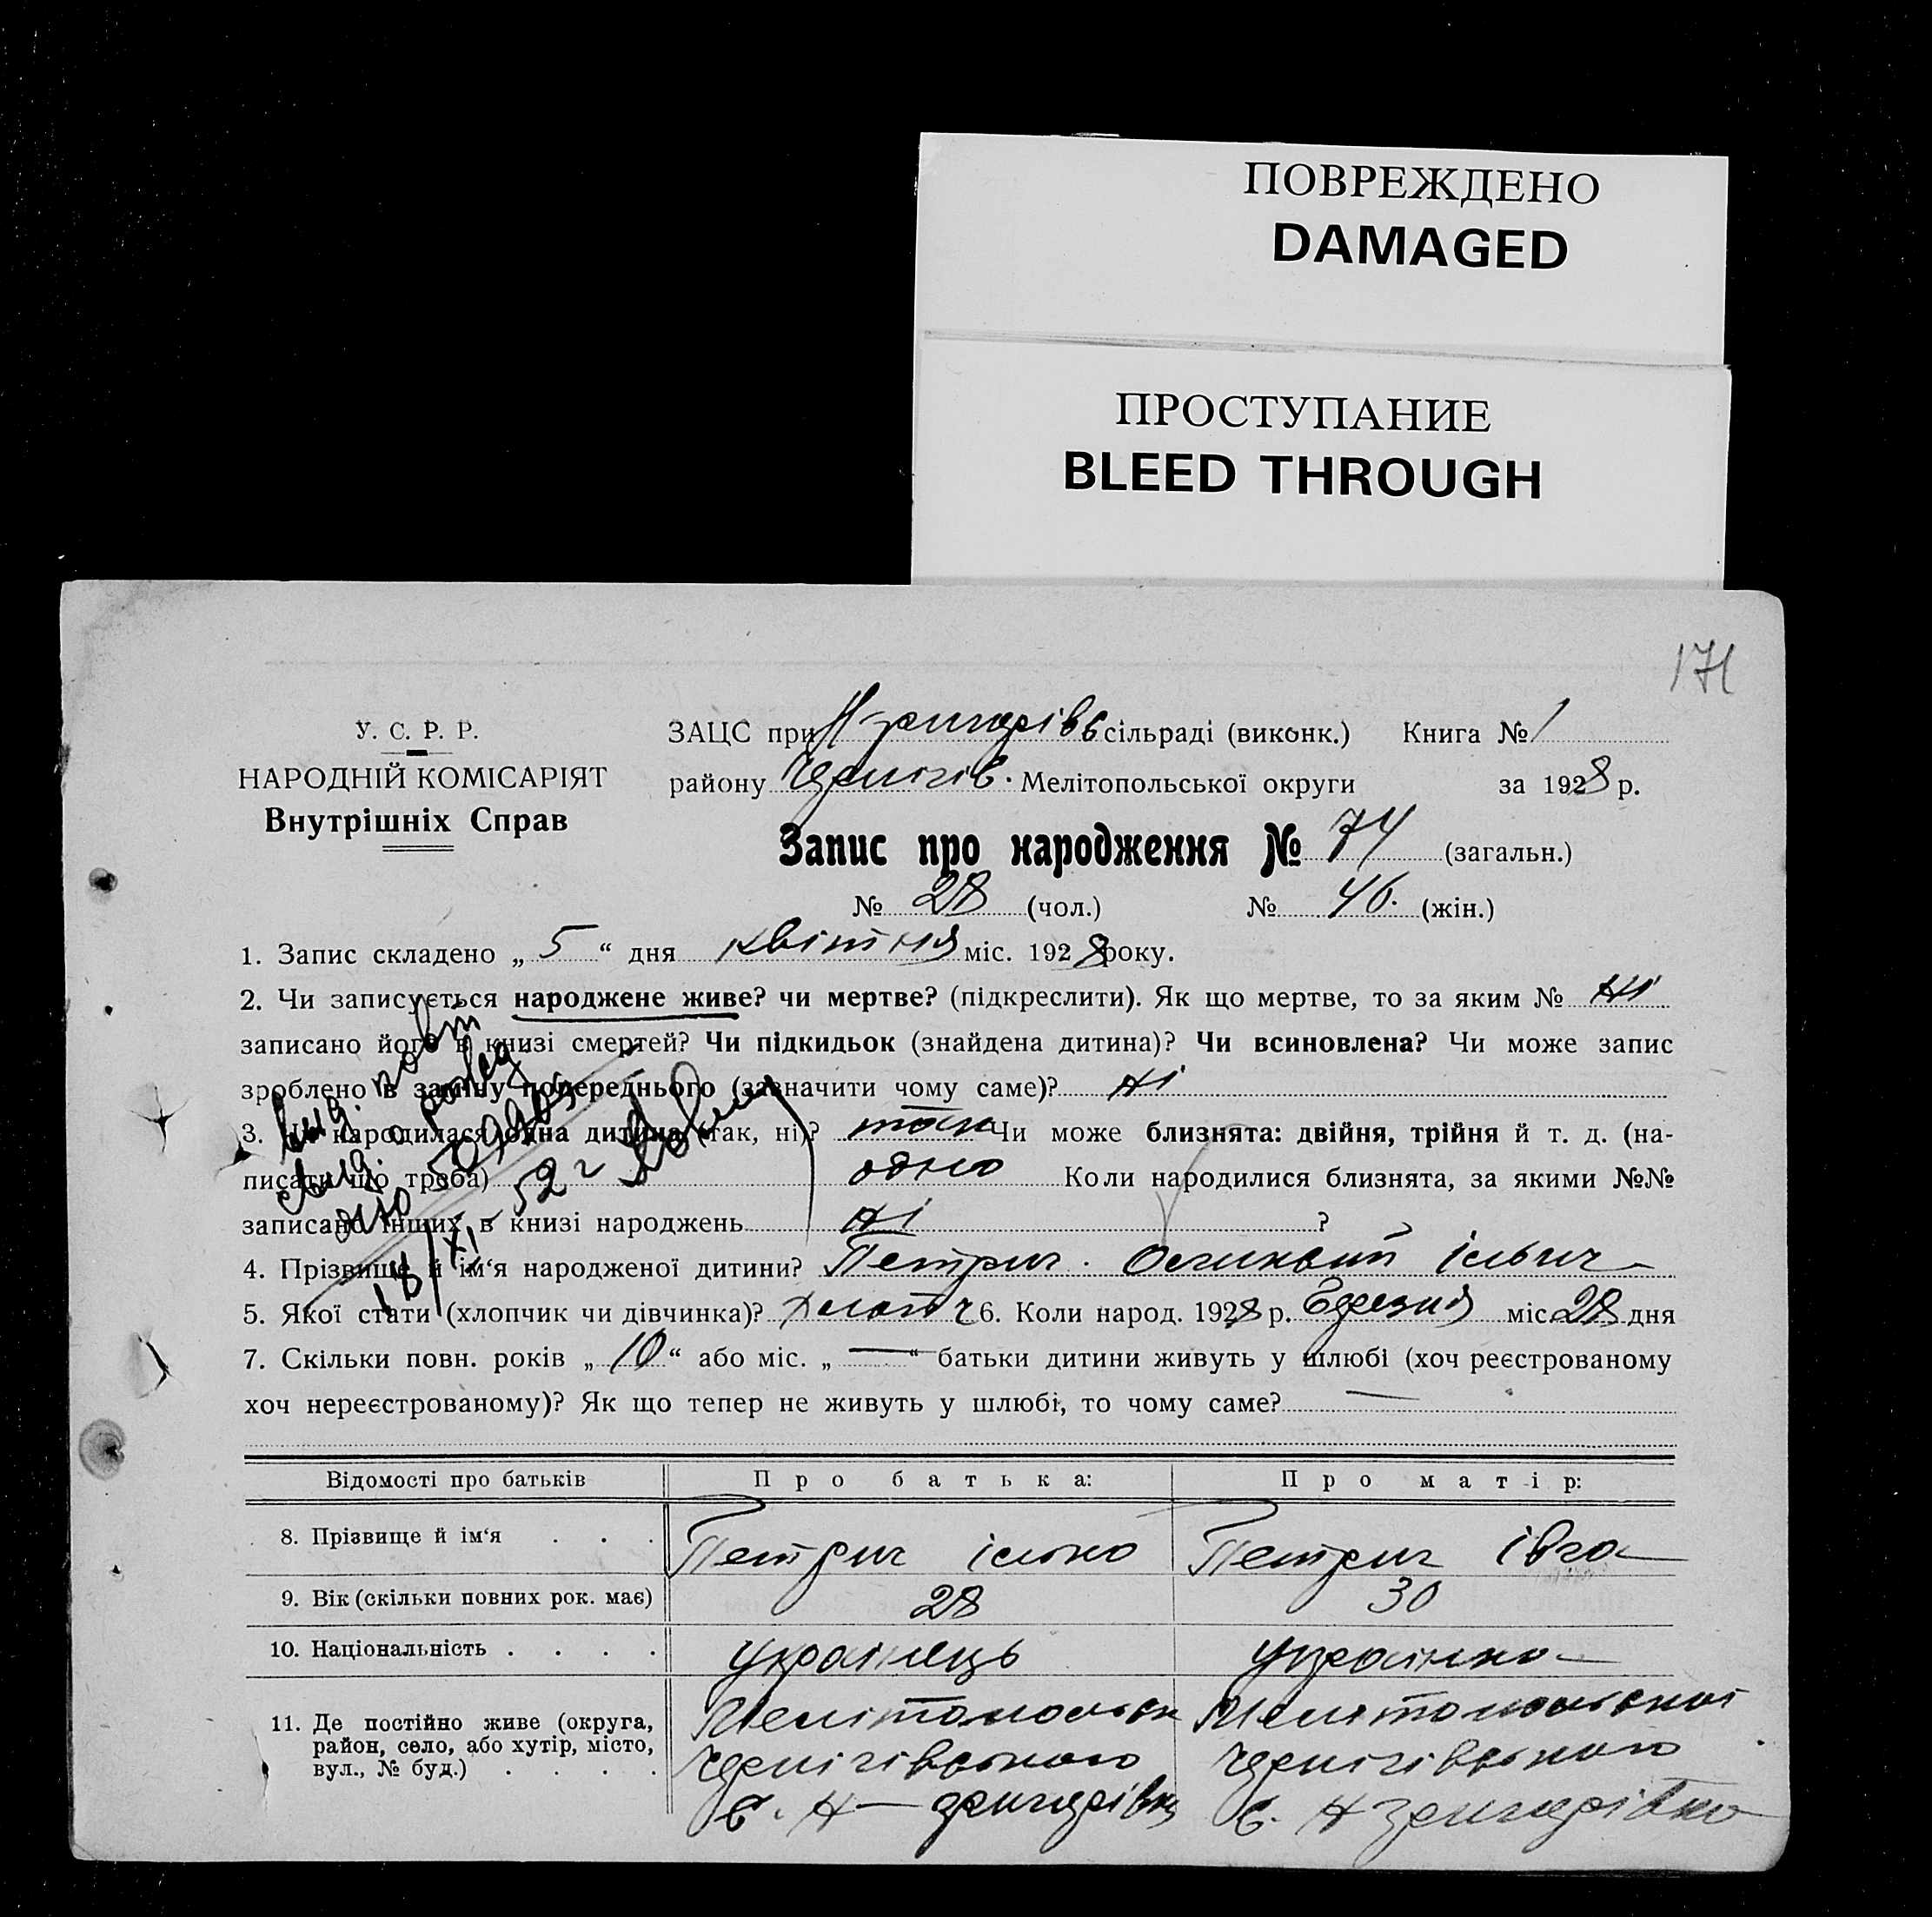 ПОВРЕЖДЕНО
DAMAGED
ПРОСТУПАНИЕ
BLEED THROUGH
171
У. С. Р. Р.
НАРОДНІЙ КОМІСАРІЯТ
Внутрішніх Справ
ЗАЦС при Н-григорівс сільраді (виконк.) Книга № 1
району Чернігів. Мелітопольської округи за 1928 р.
Запис про народження № 74 (загальн.)
№ 28 (чол.) № 46. (жін.)
1. Запис складено „ 5 “ дня квітня міс. 1928 року.
2. Чи записується народжене живе? чи мертве? (підкреслити). Як що мертве, то за яким № ні
записано його в книзі смертей? Чи підкидьок (знайдена дитина)? Чи всиновлена? Чи може запис
зроблено в заміну попереднього (зазначити чому саме)? ні
3. Чи народилася одна дитина (так, ні)? так Чи може близнята: двійня, трійня й т. д. (на-
писати що треба) одно Коли народилися близнята, за якими №№
записано інших в книзі народжень ні ?
4. Прізвище й ім‘я народженої дитини? Петрич. ільич
5. Якої стати (хлопчик чи дівчинка)? хлопч 6. Коли народ. 1928 р. Березня міс. 28 дня
7. Скільки повн. років „ 10 “ або міс. „ — “ батьки дитини живуть у шлюбі (хоч реєстрованому
хоч нереєстрованому)? Як що тепер не живуть у шлюбі, то чому саме? —
Выд. повт
свид. о рожд
18/XI-52г
Відомості про батьків Про батька: Про матір:
8. Прізвище й ім‘я . . . Петрич ілько Петрич івга
9. Вік (скільки повних рок. має) 28 30
10. Національність . . . . українець українка
11. Де постійно живе (округа, район, село, або хутір, місто, вул., № буд.) . . . .
Мелітопольськ Мелітопольської
Чернігівського Чернігівського
с. Н-григорівка с. Н григорівка